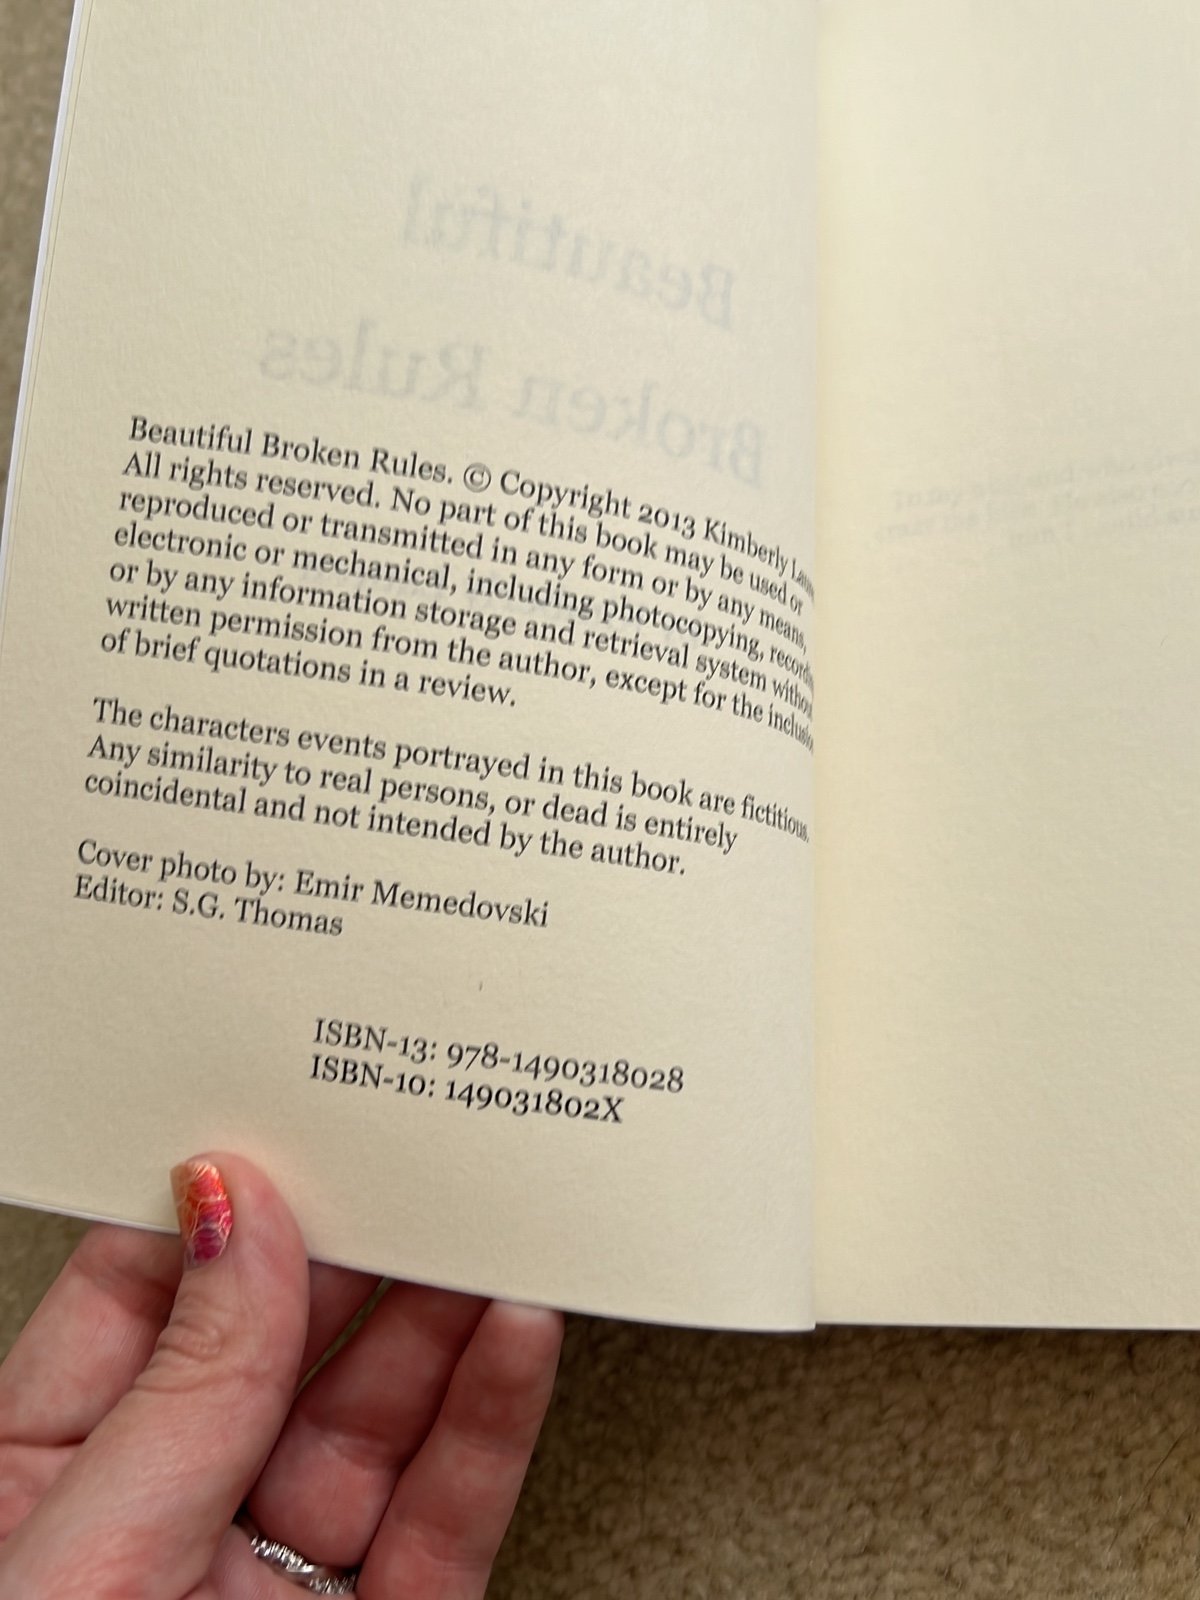 Beautiful
Broken Rules
Beautiful Broken Rules. © Copyright 2013 Kimberly
All rights reserved. No part of this book may be used or
reproduced or transmitted in any form or by any means,
electronic or mechanical, including photocopying,
or by any information storage and retrieval system
written permission from the author, except for the
of brief quotations in a review.
The characters events portrayed in this book are fictitious.
Any similarity to real persons, or dead is entirely
coincidental and not intended by the author.
Cover photo by: Emir Memedovski
Editor: S.G. Thomas
ISBN-13: 978-1490318028
ISBN-10: 149031802X